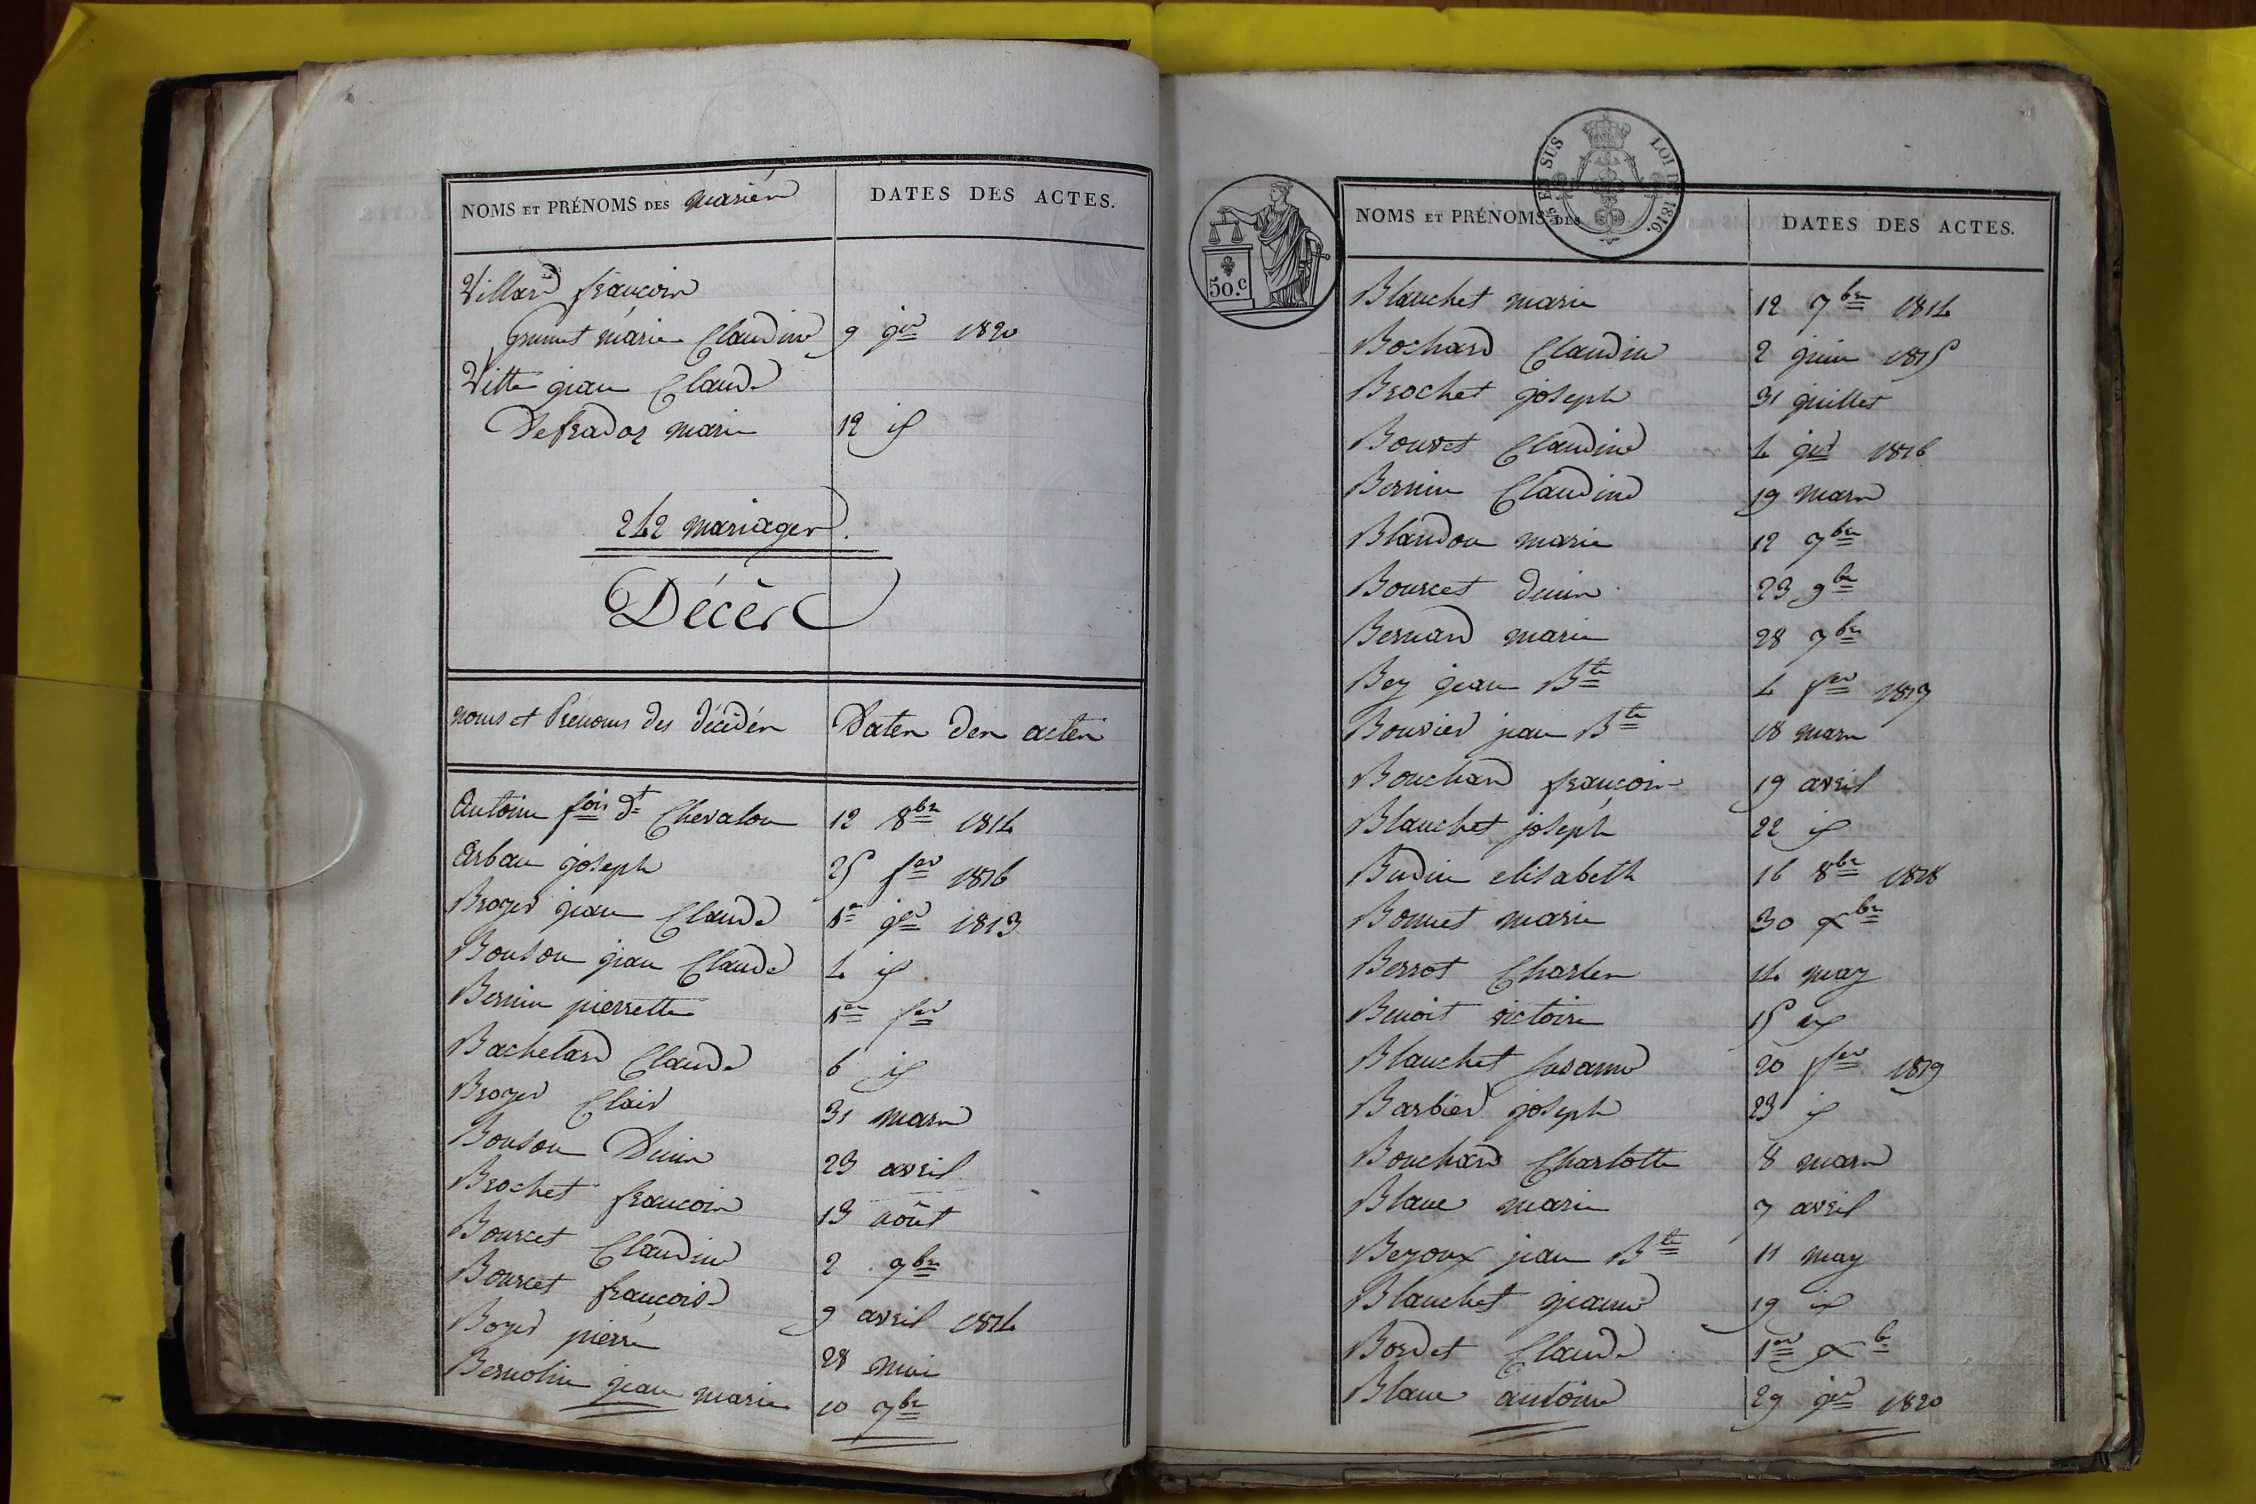 NOMS ET PRÉNOMS DES mariés DATES DES ACTES.
Villard françois
Grumet marie Claudine 9 jer 1820
Vitte jean Claude
Defradoz marie 12 id
242 mariages.
Décès
noms et Prénoms des décédés Dates des actes
Antoine fois dt Chevalon 12 8bre 1814
Arban joseph 25 fer 1816
Broyer jean Claude 1er jer 1813
Bouson jean Claude 4 id
Bernin pierrette 1er fer
Bachelard Claude 6 id
Broyer Clair 31 mars
Bouson Denis 23 avril
Brochet françois 13 août
Bourcet Claudine 2 9bre
Bourcet françois 9 avril 1814
Boyer pierre 28 mai
Bernolin jean marie 10 7bre
LOI DE 1816.
EN SUS
50.c
NOMS ET PRÉNOMS DES DATES DES ACTES.
Blanchet marie 12 7bre 1814
Bochard Claudine 2 juin 1815
Brochet joseph 31 juillet
Bouvet Claudine 4 jer 1816
Bernin Claudine 19 mars
Blandon marie 12 7bre
Bourcet denis 23 9bre
Bernard marie 28 7bre
Bey jean Bte 4 fer 1817
Bouvier jean Bte 18 mars
Bouchard françois 19 avril
Blanchet joseph 22 id
Budin elisabeth 16 8bre 1818
Bonnet marie 30 xbre
Berrot Charles 14 may
Benoit victoire 15 id
Blanchet susanne 20 fer 1819
Barbier joseph 23 id
Bouchard Charlotte 8 mars
Blanc marie 7 avril
Beyoux jean Bte 11 may
Blanchet jeanne 19 id
Bordet Claude 1er xb
Blanc antoine 29 jer 1820